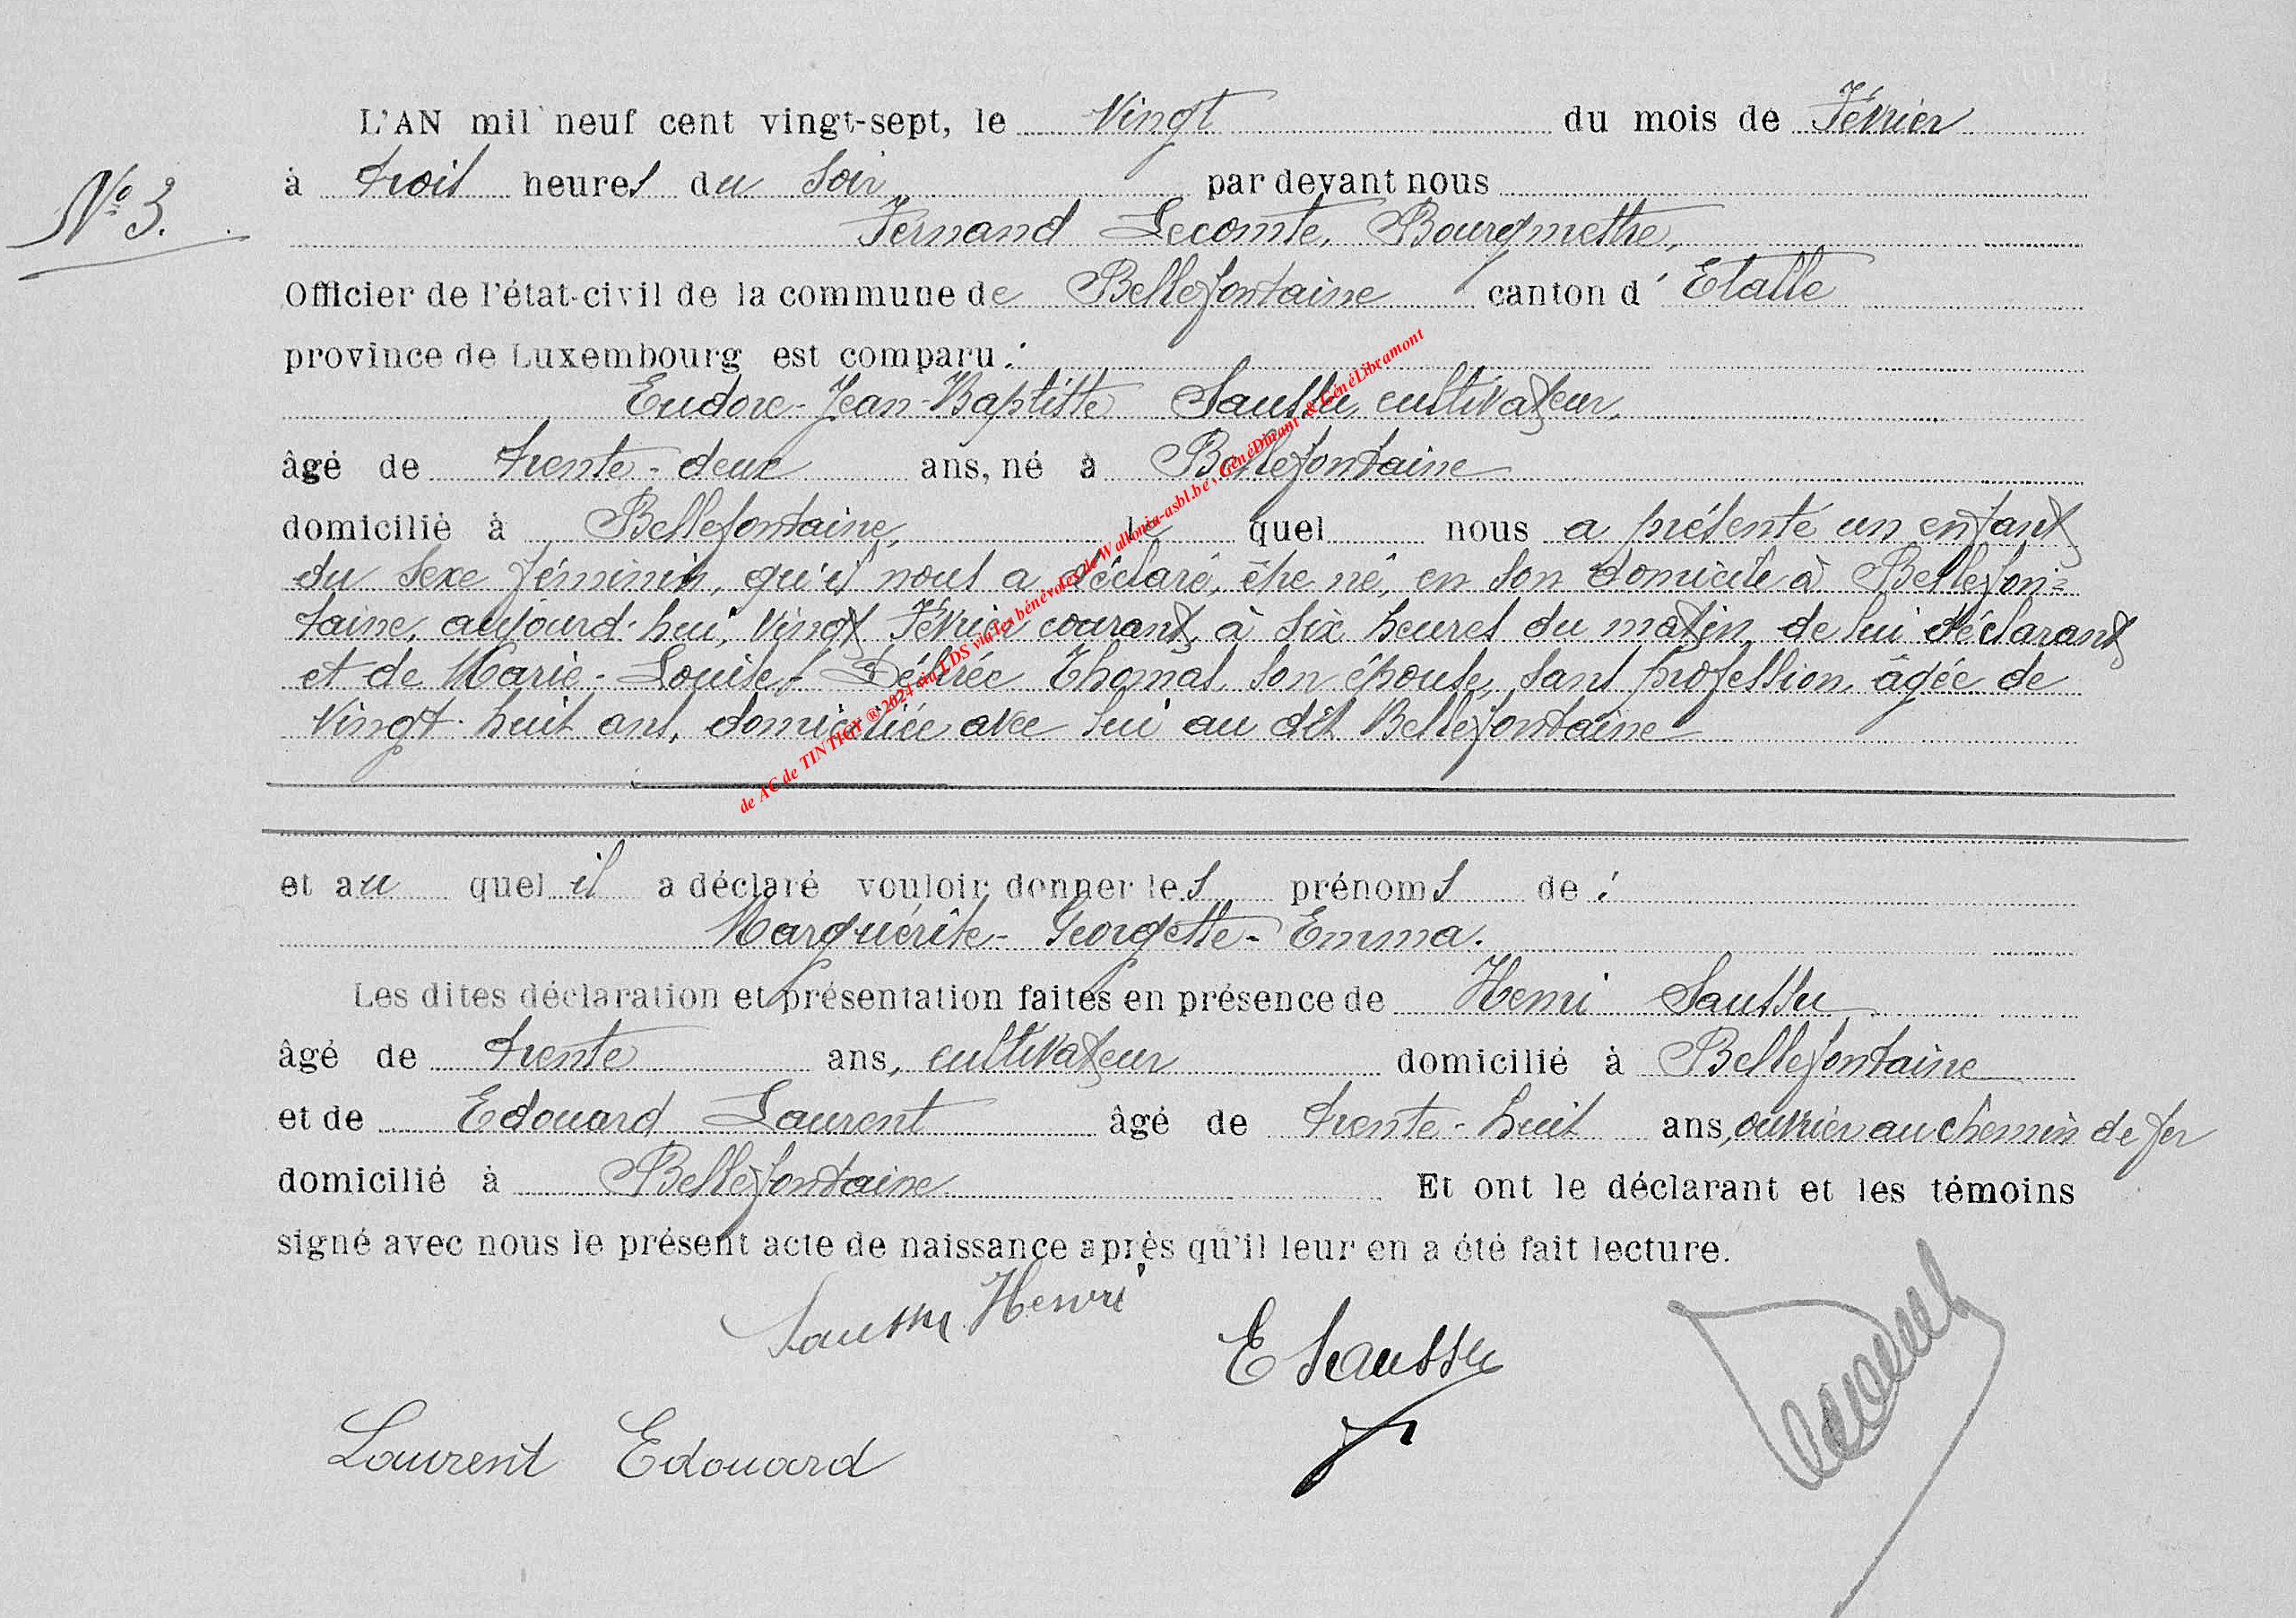 L'AN mil neuf cent vingt-sept, le Vingt du mois de Février
N° 3.
à trois heures du soir par devant nous
Fernand Lecomte, Bourgmettre,
Officier de l'état-civil de la commune de Bellefontaine canton d' Etalle
province de Luxembourg est comparu :
Eudore-Jean-Baptiste Saussu, cultivateur,
âgé de trente-deux ans, né à Bellefontaine
domicilié à Bellefontaine, le quel nous a présenté un enfant
du sexe féminin, qu'il nous a déclaré, être né, en son domicile à Bellefon=
taine, aujourd'hui, vingt Février courant, à six heures du matin, de lui déclarant
et de Marie-Louise-Désirée Thomas, son épouse, sans profession, âgée de
vingt-huit ans, domiciliée avec lui au dit Bellefontaine
et au quel il a déclaré vouloir donner les prénoms de :
Marguérite-Georgette-Emma.
Les dites déclaration et présentation faites en présence de Henri Saussu
âgé de trente ans, cultivateur domicilié à Bellefontaine
et de Edouard Laurent âgé de trente-huit ans, ouvrier au chemin de fer
domicilié à Bellefontaine Et ont le déclarant et les témoins
signé avec nous le présent acte de naissance après qu'il leur en a été fait lecture.
Saussu Henri
E Saussu
Laurent Edouard
de AC de TINTIGY ® 2024 via LDS via les bénévoles de Wallonia-asbl.be, GénéDinant & GénéLibramont